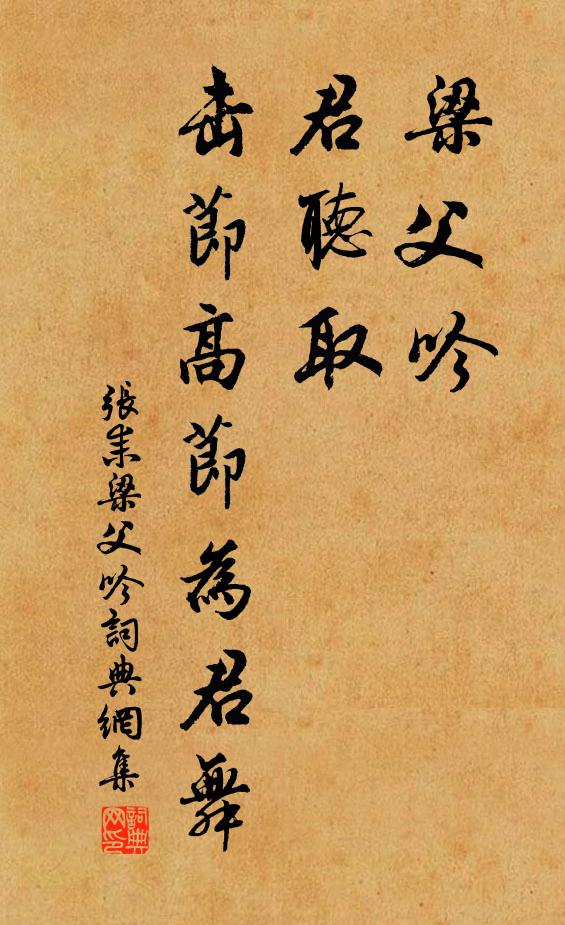 梁父吟
君聽取
击節高節為君舞
張耒梁父吟詞典網集
詞典
网印